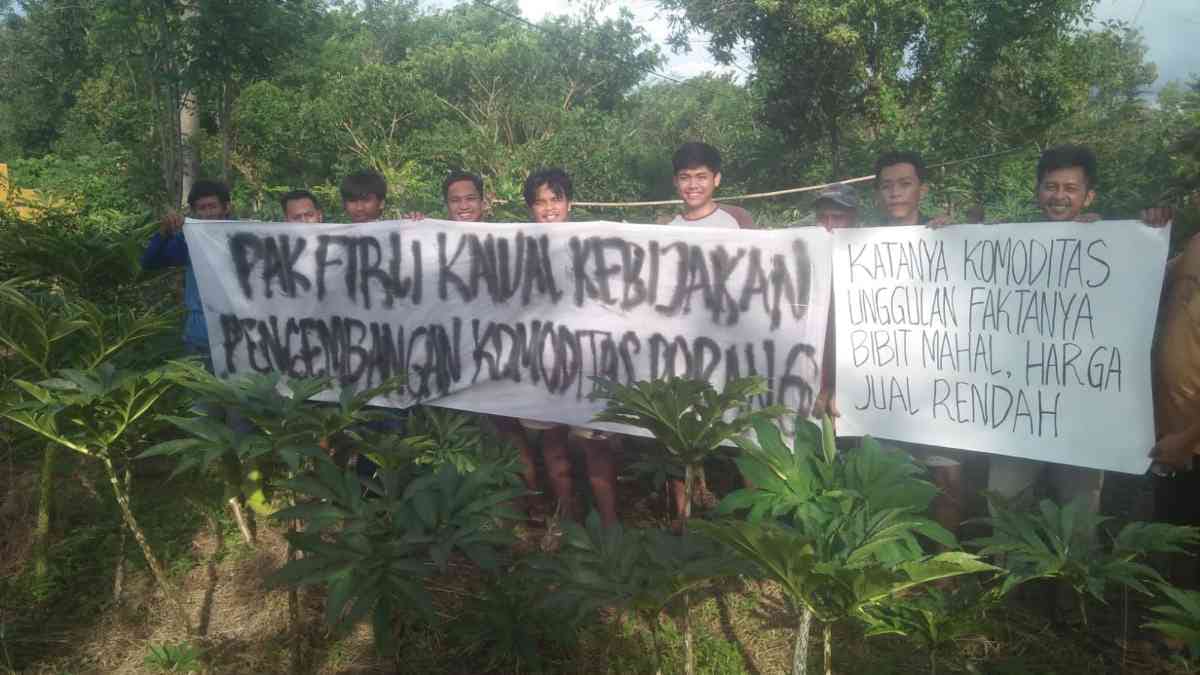 PAK FIRLI KAWAL KEBIJAKAN
PENGEMBANGAN KOMODITAS PORANG
KATANYA KOMODITAS
UNGGULAN FAKTANYA
BIBIT MAHAL, HARGA
JUAL RENDAH